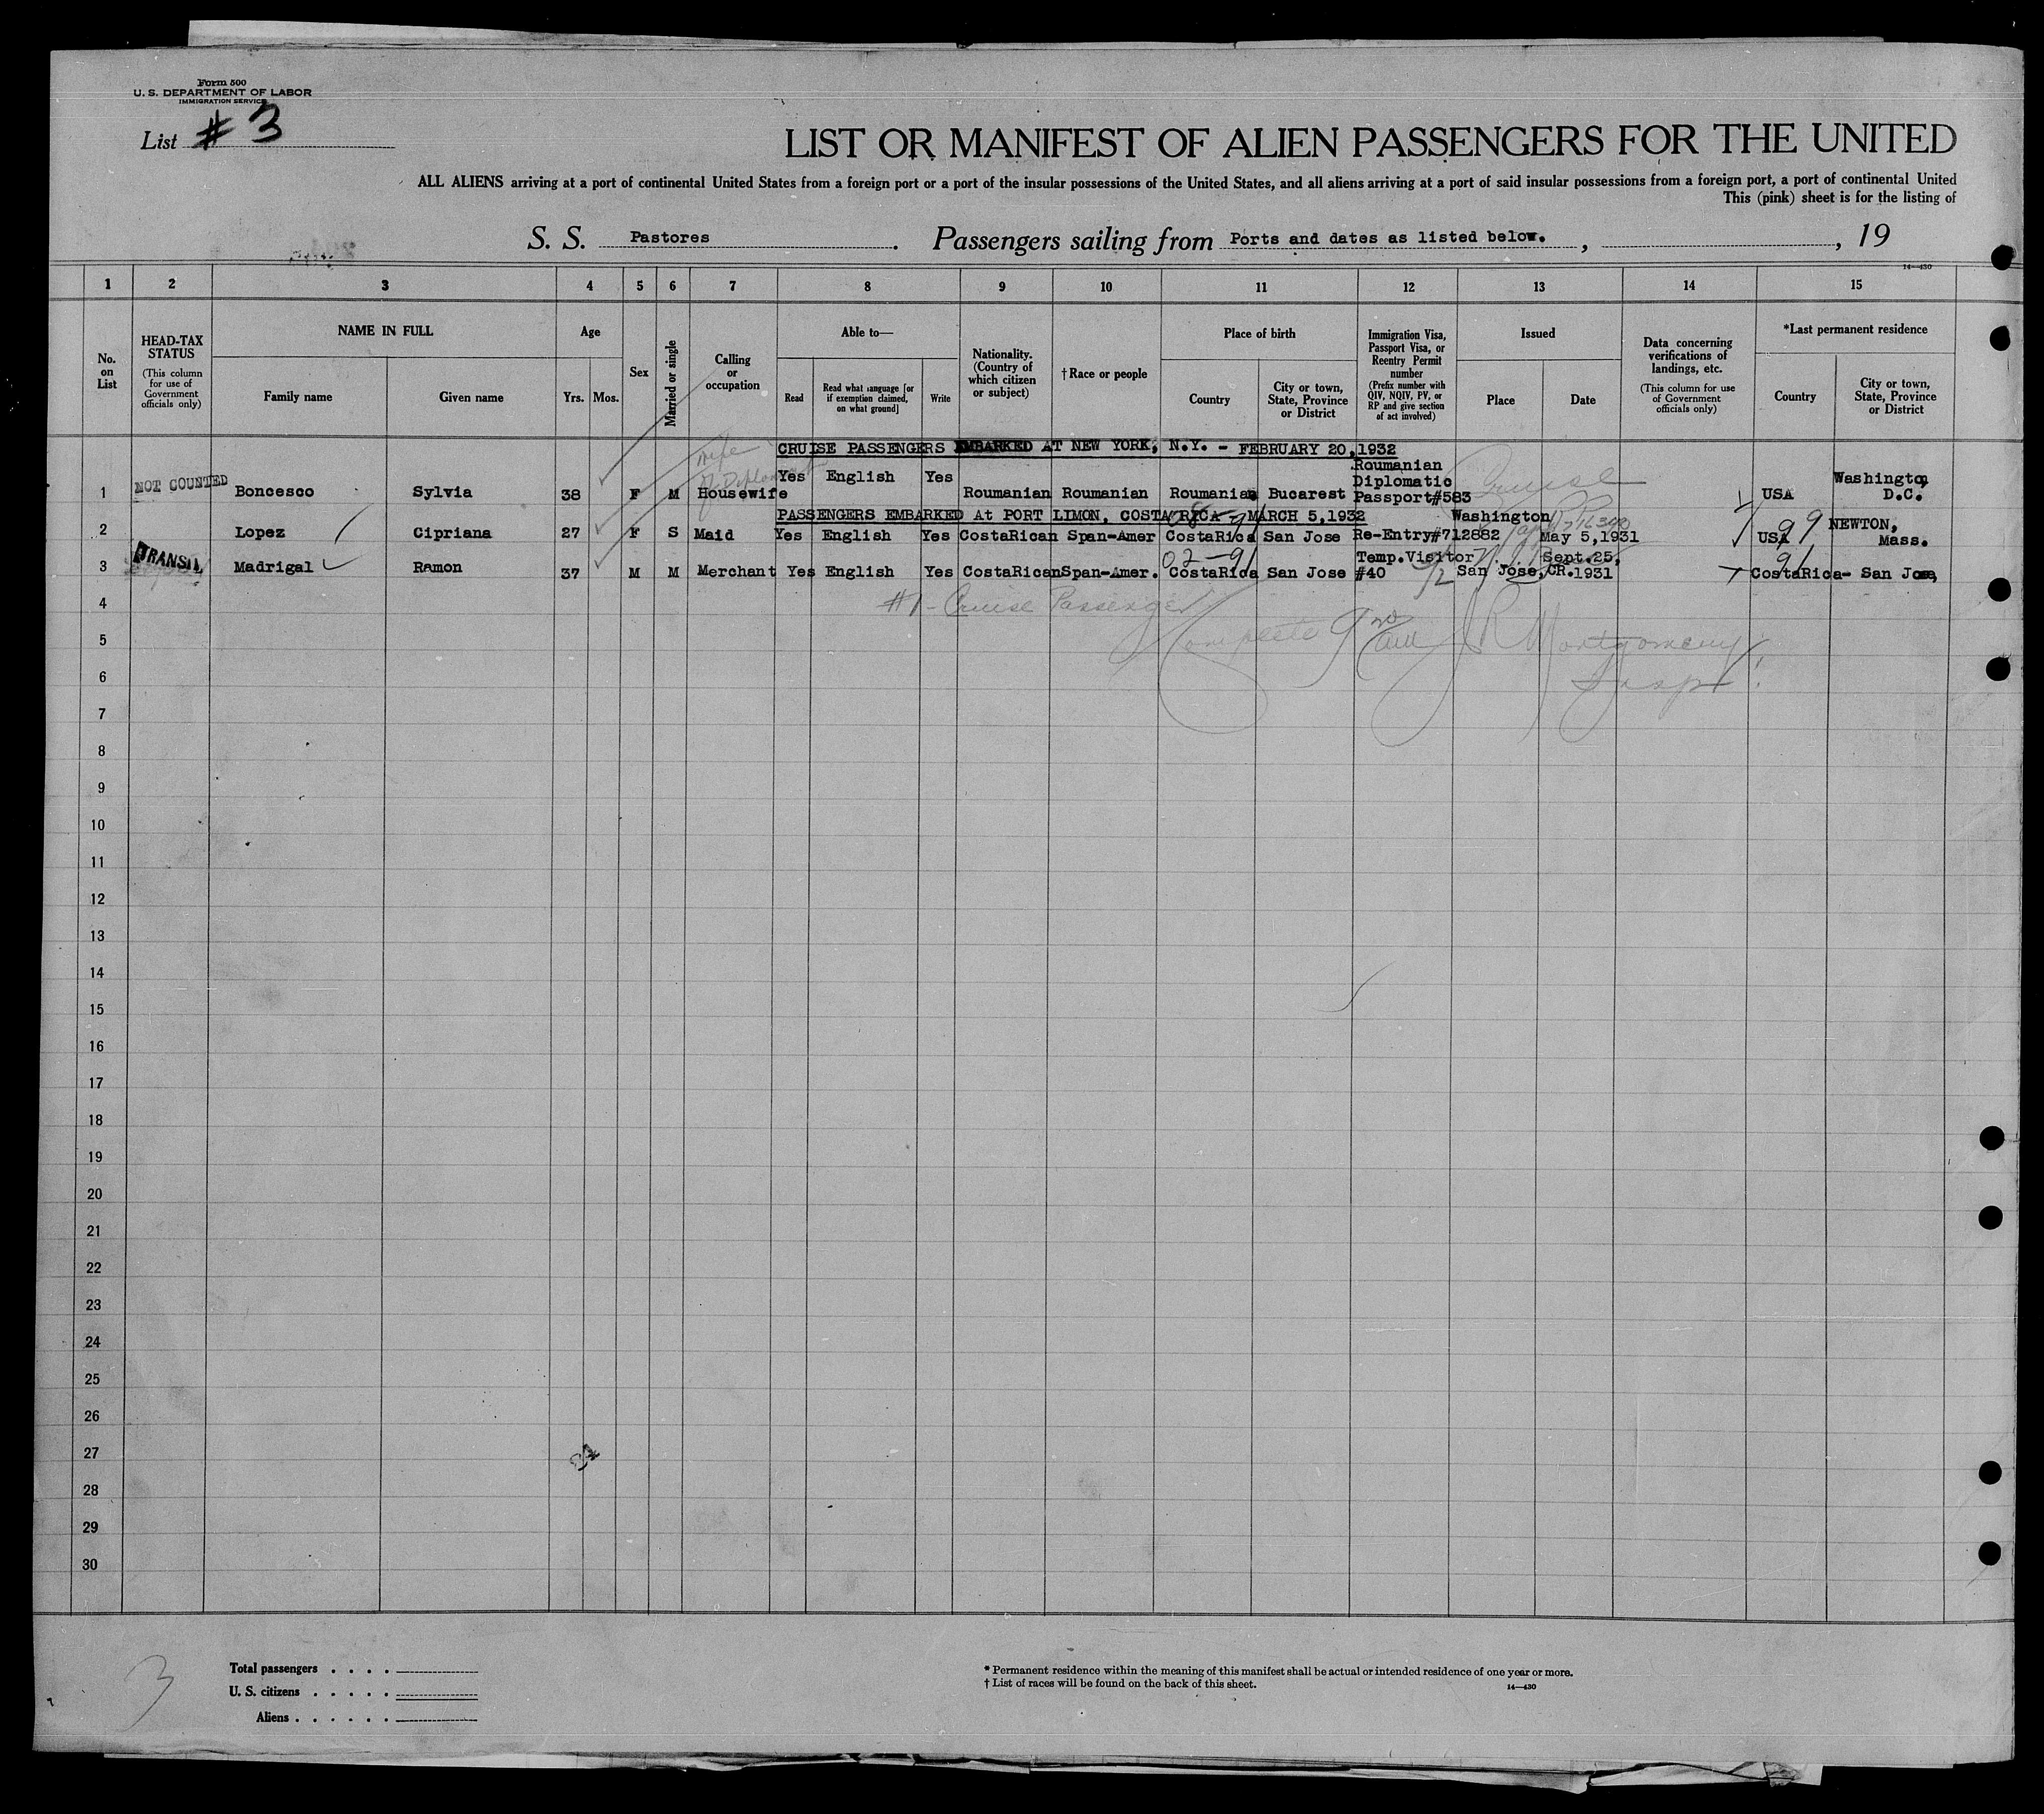 Form 500
U. S. DEPARTMENT OF LABOR
IMMIGRATION SERVICE
List # 3
LIST OR MANIFEST OF ALIEN PASSENGERS FOR THE UNITED
ALL ALIENS arriving at a port of continental United States from a foreign port or a port of the insular possessions of the United States, and all aliens arriving at a port of said insular possessions from a foreign port, a port of continental United
This (pink) sheet is for the listing of
S. S. Pastores. Passengers sailing from Ports and dates as listed below. , , 19
14—430
1 2 3 4 5 6 7 8 9 10 11 12 13 14 15
No. on List
HEAD-TAX STATUS (This column for use of Government officials only)
NAME IN FULL
Family name Given name
Age
Yrs. Mos.
Sex
Married or single
Calling or occupation
Able to—
Read
Read what language [or if exemption claimed, on what ground]
Write
Nationality. (Country of which citizen or subject)
†Race or people
Place of birth
Country
City or town, State, Province or District
Immigration Visa, Passport Visa, or Reentry Permit number (Prefix number with QIV, NQIV, PV, or RP and give section of act involved)
Issued
Place Date
Data concerning verifications of landings, etc. (This column for use of Government officials only)
*Last permanent residence
Country
City or town, State, Province or District
CRUISE PASSENGERS EMBARKED AT NEW YORK, N.Y. - FEBRUARY 20,1932
wife of Diplomat
1 NOT COUNTED Boncesco Sylvia 38 F M Housewife Yes English Yes Roumanian Roumanian Roumanian Bucarest Roumanian Diplomatic Passport#583 Cruise USA Washington, D.C.
PASSENGERS EMBARKED At PORT LIMON, COSTA RICA - MARCH 5,1932
08-91
2 Lopez Cipriana 27 F S Maid Yes English Yes CostaRican Span-Amer CostaRica San Jose Re-Entry#712882 Washington May 5,1931 USA 99 NEWTON, Mass.
02-91
3 TRANSIT Madrigal Ramon 37 M M Merchant Yes English Yes CostaRican Span-Amer. CostaRica San Jose Temp.Visitor #40 San Jose, CR. Sept.25, 1931 91 CostaRica- San Jose,
4 #1 - Cruise Passenger
5 Complete J R Montgomery
6 Insp
7
8
9
10
11
12
13
14
15
16
17
18
19
20
21
22
23
24
25
26
27
28
29
30
24
3
Total passengers . . . .
U. S. citizens . . . . .
Aliens . . . . . .
* Permanent residence within the meaning of this manifest shall be actual or intended residence of one year or more.
† List of races will be found on the back of this sheet.
14—430